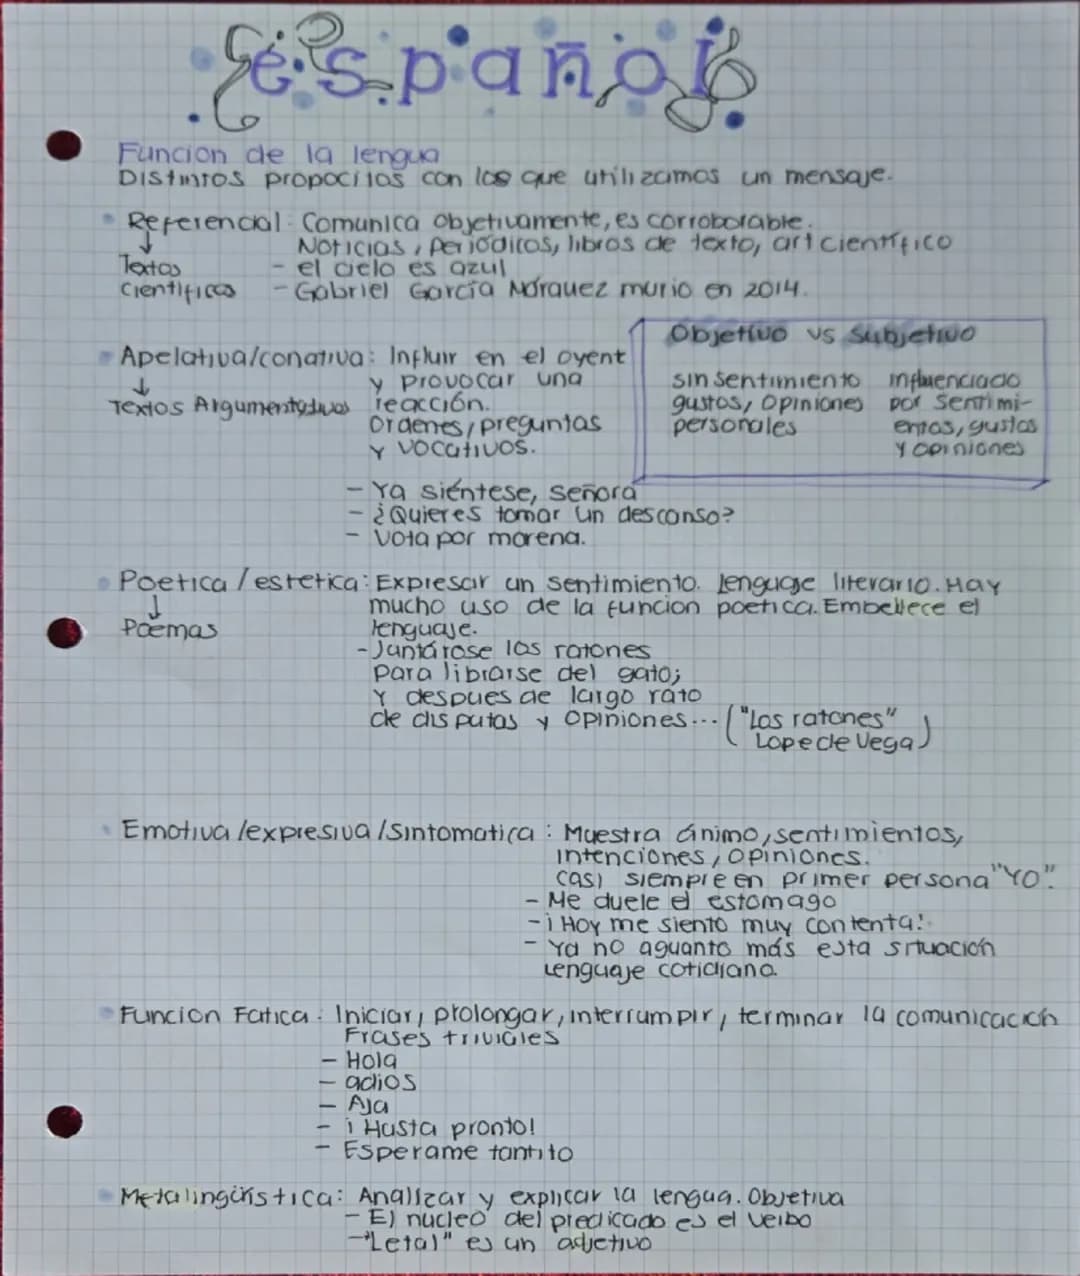 español
Funcion de la lengua
Distintos propocitos con los que utilizamos un mensaje.
Referencial: Comunica objetivamente, es corroborable.
↓ Noticias, periódicos, libros de texto, art cientifico
Textos - el cielo es azul
Cientificos - Gabriel García Márquez murio en 2014.
Objetivo vs Subjetivo
sin sentimiento influenciado
gustos, opiniones por sentimi-
personales entos, gustos
y opiniones
Apelativa/conativa: Influir en el oyent
↓ y provocar una
Textos Argumentativos reacción.
Ordenes, preguntas
y vocativos.
- Ya siéntese, señora
- ¿Quieres tomar un desconso?
- Vota por morena.
Poetica / estetica: Expresar un sentimiento. lenguaje literario. Hay
↓ mucho uso de la funcion poetica. Embellece el
Poemas lenguaje.
- Juntárose los ratones
para librarse del gato;
Y despues de largo rato
de disputas y opiniones... ("Los ratones"
Lope de Vega)
Emotiva/expresiva/Sintomatica: Muestra ánimo, sentimientos,
intenciones, opiniones.
casi siempre en primer persona "YO".
- Me duele el estomago
- ¡Hoy me siento muy contenta!
- Ya no aguanto más esta situación
Lenguaje cotidiano.
Funcion Fatica: Iniciar, prolongar, interrumpir, terminar la comunicación
Frases triviales
- Hola
- adios
- Aja
- ¡Hasta pronto!
- Esperame tantito
Metalingüística: Analizar y explicar la lengua. Objetiva
- El nucleo del predicado es el verbo
- "Letal" es un adjetivo